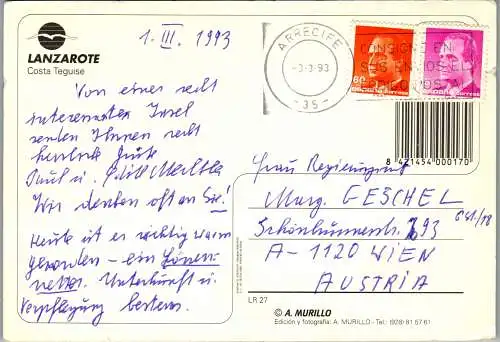 LANZAROTE
Costa Teguise
1. III. 1993
Von einer recht
interessanten Insel
senden Ihnen recht
herzliche Grüße
Paul u. Edith
Wir denken oft an Sie!
Heute ist es richtig warm
geworden - ein
Unterkunft u.
Verpflegung bestens.
ARRECIFE
-3-3-93
-35-
CONSIGNE EN
SUS ENVIOS EL
CODIGO POSTAL
8 421454 000170
Frau Regierungsrat
Marg. GESCHEL
93
A-1120 WIEN
AUSTRIA
LR 27
© A. MURILLO
Edición y fotografía: A. MURILLO-Tel.: (928) 81 57 61